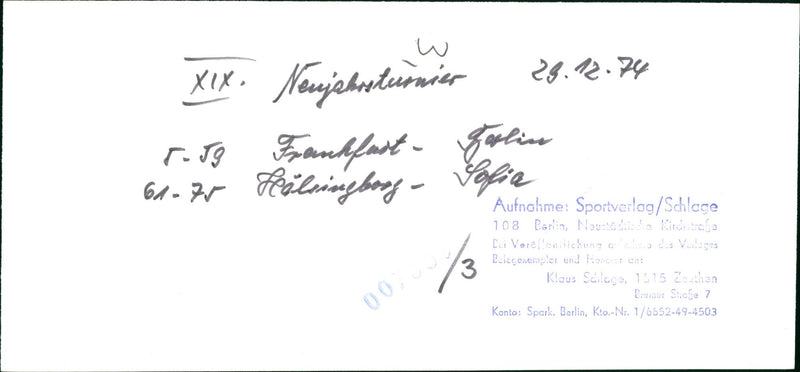 W
XIX. Neujahrsturnier 29.12.74
5-59 Frankfurt - Berlin
61-75 Hälsingborg - Sofia
Aufnahme: Sportverlag/Schlage
108 Berlin, Neustädtische Kirchstraße
Bei Veröffentlichung außerhalb des Verlages
Belegexemplar und Honorar an:
Klaus Schlage, 1615 Zeuthen
Straße 7
Konto: Spark. Berlin, Kto.-Nr. 1/6652-49-4503
/3